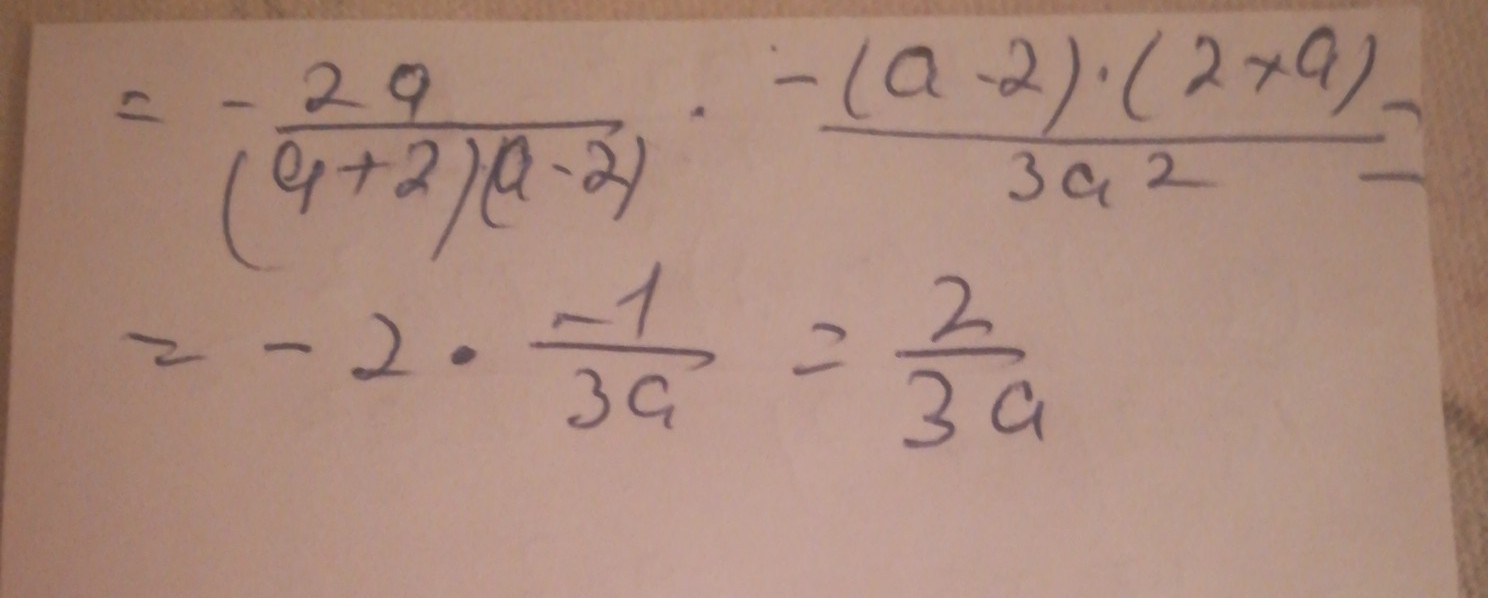 = - 2a / (a+2)(a-2) · -(a-2)·(2+a) / 3a2 =
= -2 · -1 / 3a = 2 / 3a